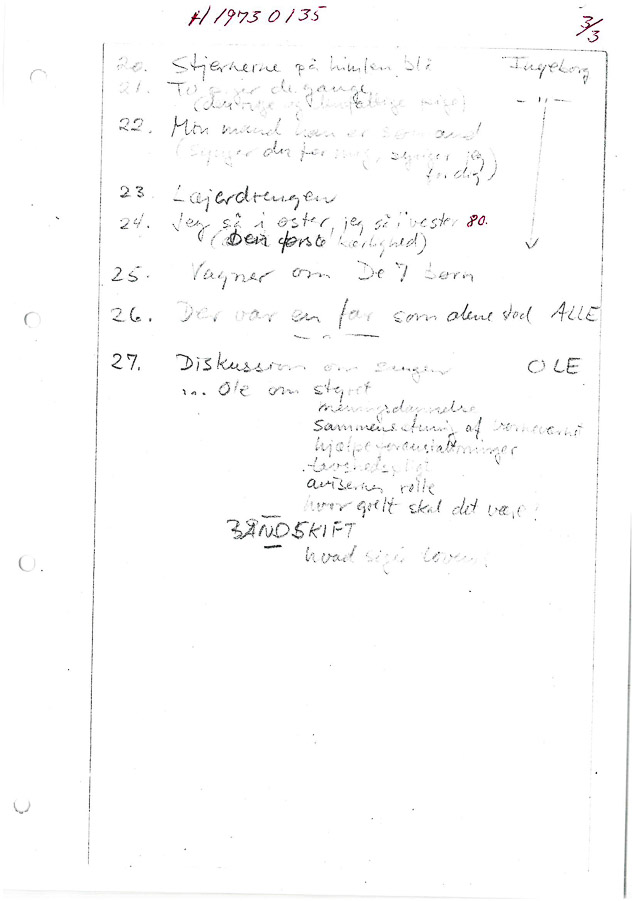 H 1973 0135
3/3
20. Stjernerne på himlen blå Ingeborg
21. To unger de gange - " -
22. Min mand han er som and
(synger du for mig, synger jeg
for dig)
23. Lejerdrengen
24. Jeg så i øster, jeg så i vester 80.
(Den første kærlighed)
25. Vagner om De 7 børn
26. Der var en far som alene stod ALLE
- " -
27. Diskussion om sangen OLE
... Ole om styret
meningsdannelse
sammensætning af
hjælpeforanstaltninger
tavshedspligt
avisernes rolle
hvor galt skal det være!
BÅNDSKIFT
hvad siger loven